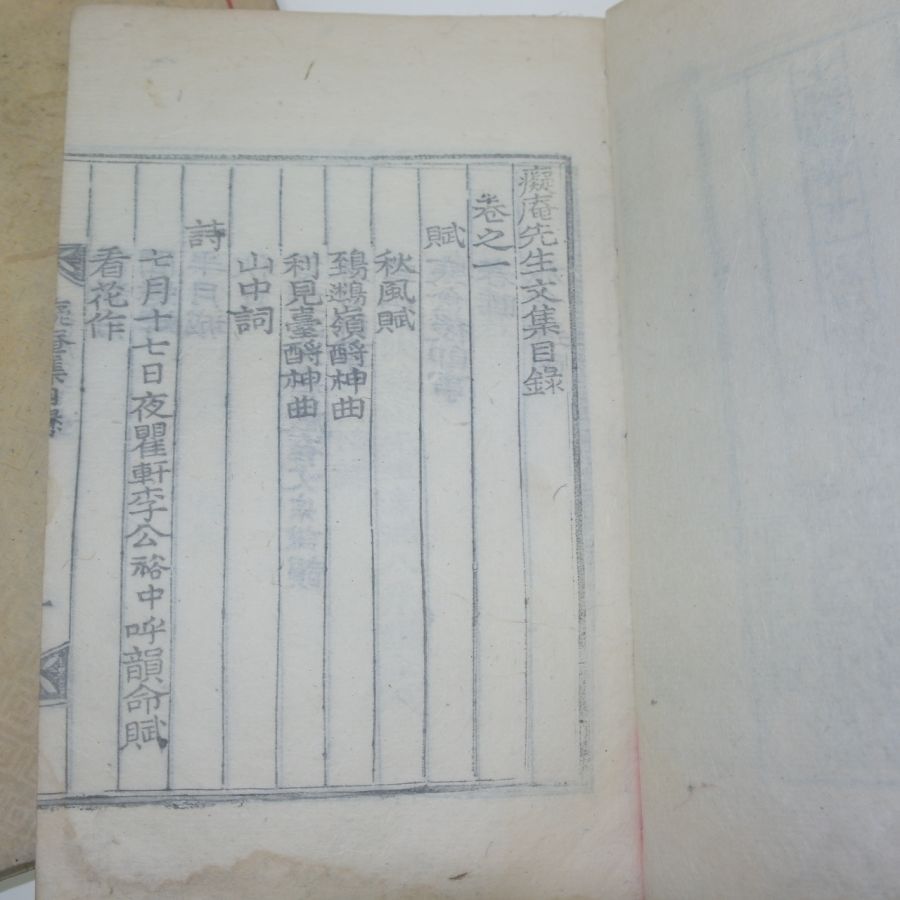 癡庵先生文集目錄
卷之一
賦
秋風賦
鵄鷂嶺酹神曲
利見臺酹神曲
山中詞
詩
七月十七日夜瞿軒李公裕中呼韻命賦
看花作
癡庵集目錄
一